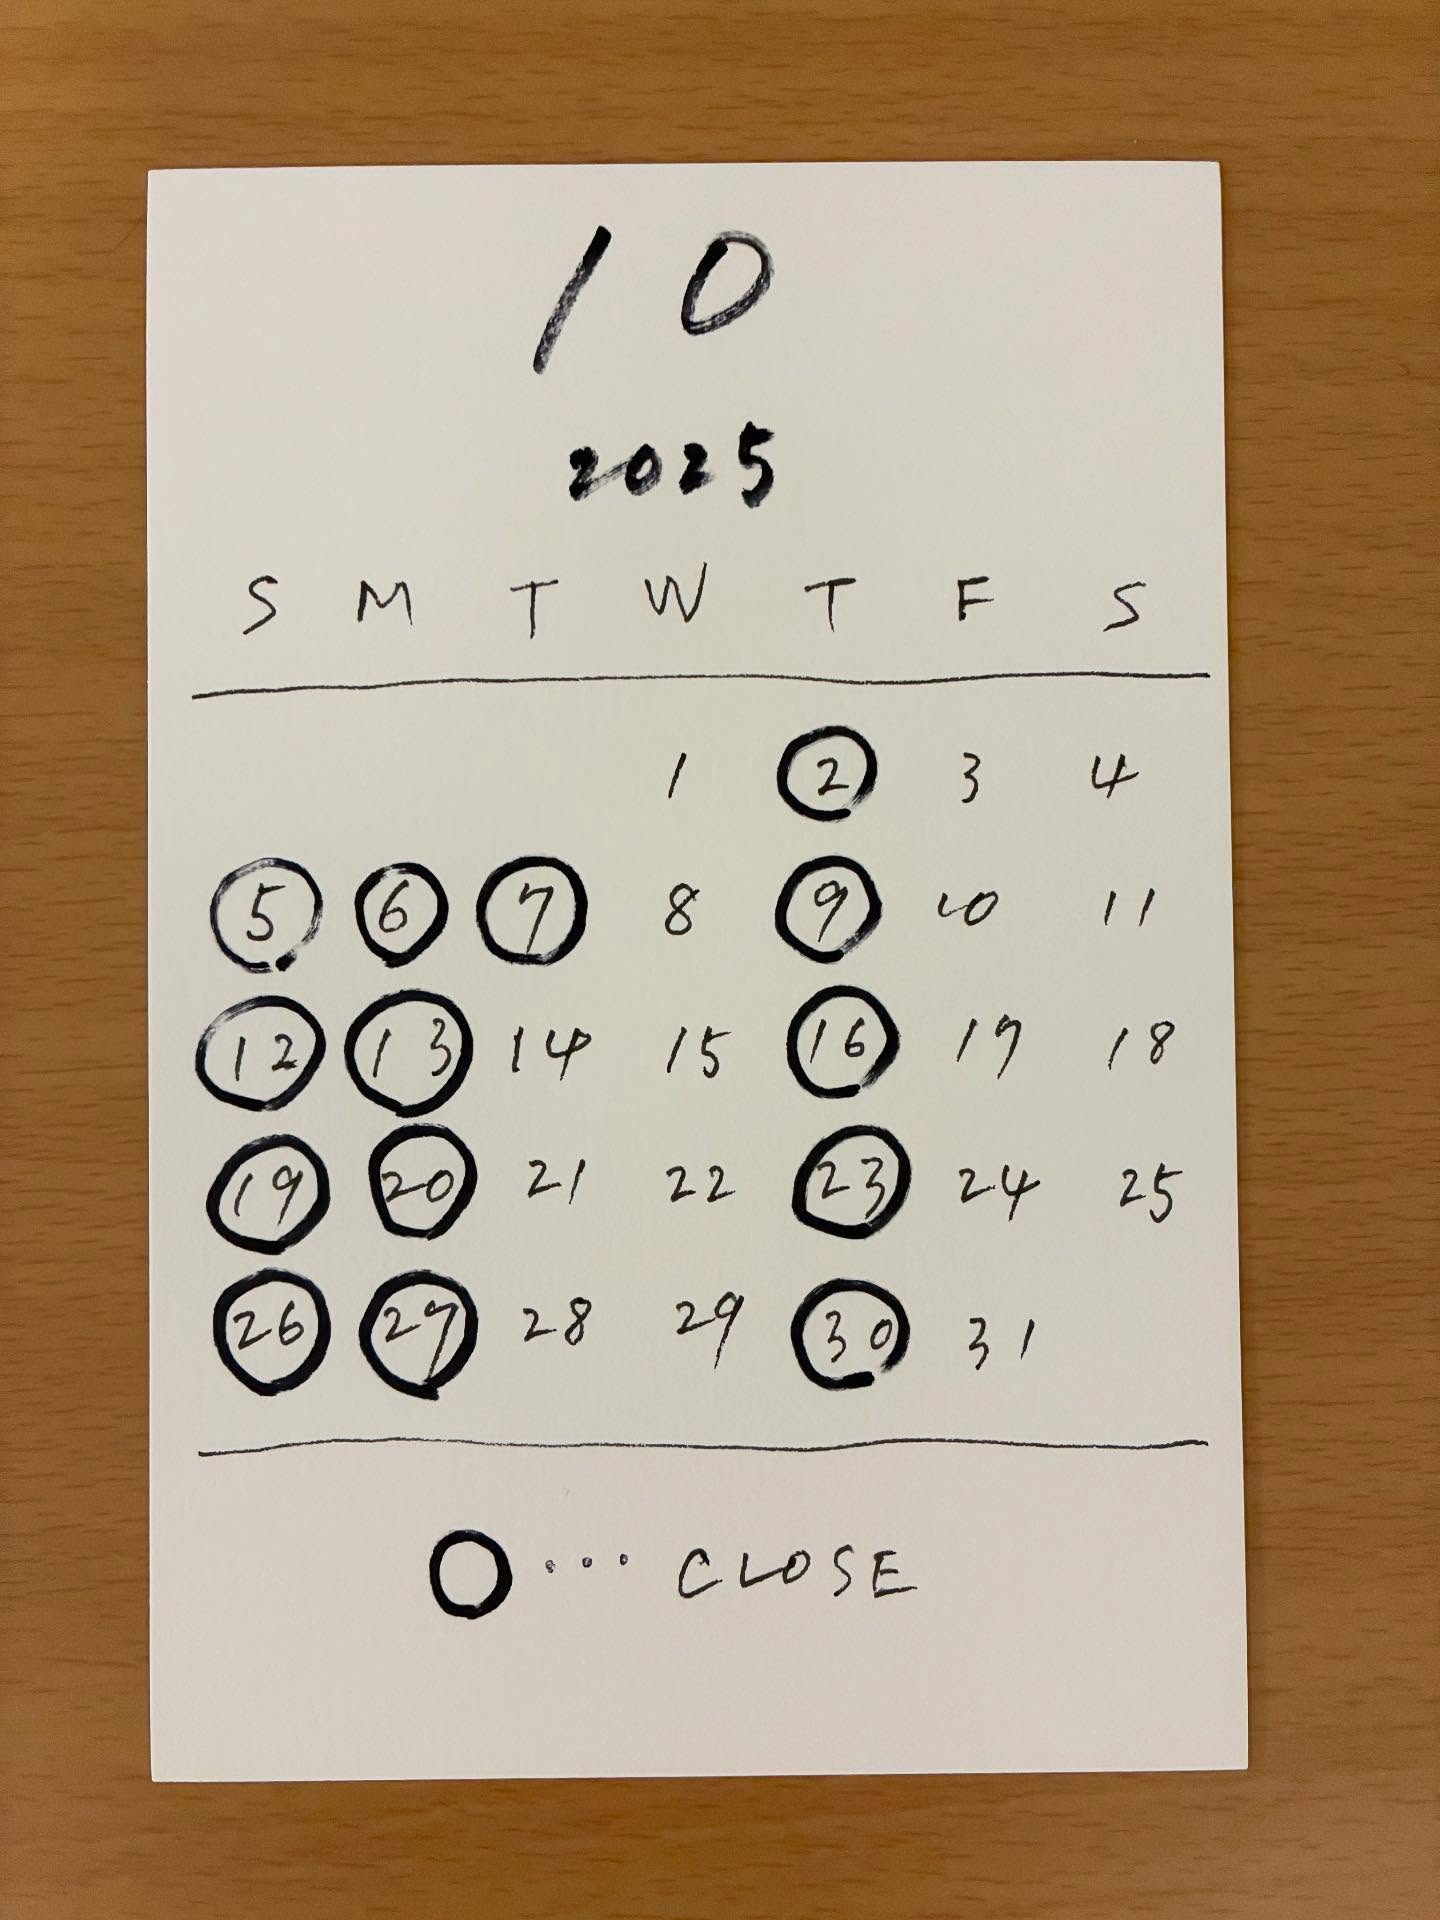 10
2025
S M T W T F S
1 2 3 4
5 6 7 8 9 10 11
12 13 14 15 16 17 18
19 20 21 22 23 24 25
26 27 28 29 30 31
○··· CLOSE